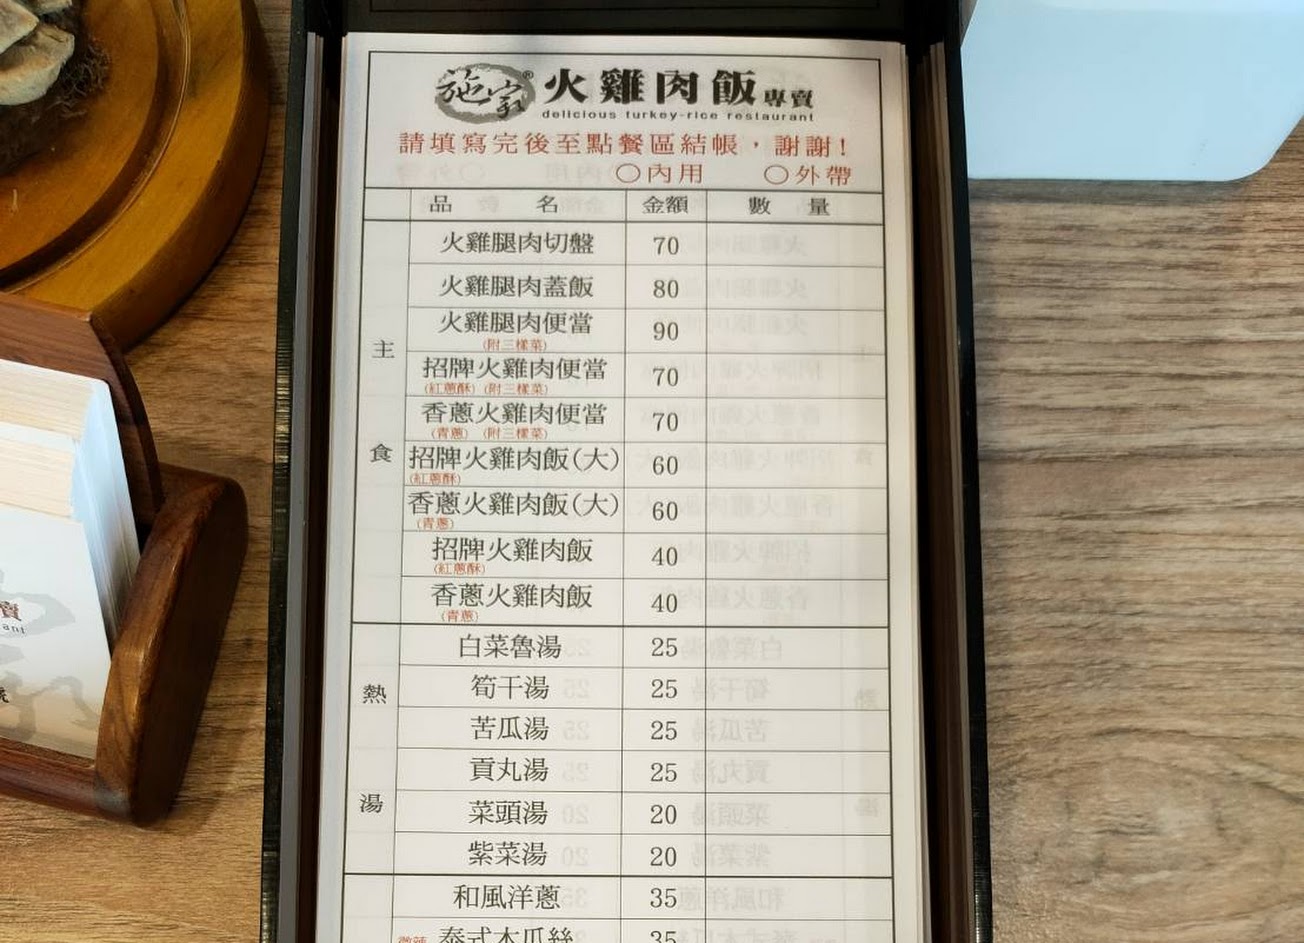 施家® 火雞肉飯 專賣
delicious turkey-rice restaurant
請填寫完後至點餐區結帳，謝謝！
○內用 ○外帶
品名 金額 數量
主食
火雞腿肉切盤 70
火雞腿肉蓋飯 80
火雞腿肉便當 90
(附三樣菜)
招牌火雞肉便當 70
(紅蔥酥) (附三樣菜)
香蔥火雞肉便當 70
(青蔥) (附三樣菜)
招牌火雞肉飯(大) 60
(紅蔥酥)
香蔥火雞肉飯(大) 60
(青蔥)
招牌火雞肉飯 40
(紅蔥酥)
香蔥火雞肉飯 40
(青蔥)
熱湯
白菜魯湯 25
筍干湯 25
苦瓜湯 25
貢丸湯 25
菜頭湯 20
紫菜湯 20
和風洋蔥 35
微辣 泰式木瓜絲 35
賣
ant